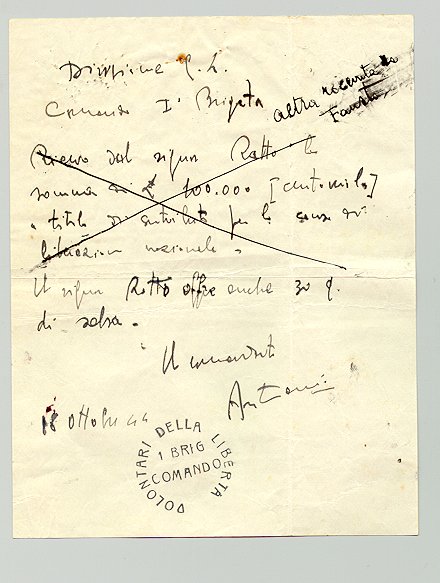 Divisione G. L.
Comando Iª Brigata
altra ricevuta da
Fausto
Ricevo dal signor Ratto la
somma di £ 100.000 [centomila]
a titolo di contributo per la causa di
liberazione nazionale.
Il signor Ratto offre anche 30 q.
di salsa.
Il comandante
18 ottobre 44
VOLONTARI DELLA LIBERTA
1 BRIG
COMANDO